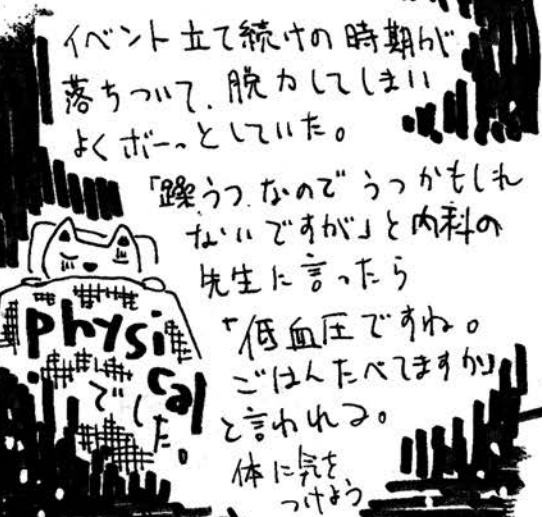 イベント立て続けの時期が
落ちついて、脱力してしまい
よくボーっとしていた。
「躁うつなのでうつかもしれ
ないですが」と内科の
先生に言ったら
「低血圧ですね。
ごはんたべてますか」
と言われる。
体に気を
つけよう
physi
cal
でした。